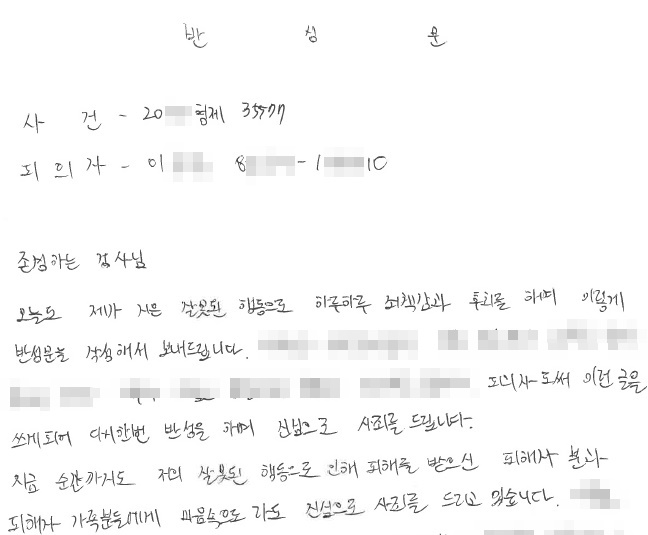 반 성 문
사 건 - 20 형제 35577
피 의 자 - 이 8 - 1 10
존경하는 검사님
오늘도 제가 지은 잘못된 행동으로 하루하루 죄책감과 후회를 하며 이렇게
반성문을 작성해서 보내드립니다.
피의자로써 이런 글을
쓰게되어 다시한번 반성을 하며 진심으로 사죄를 드립니다.
지금 순간까지도 저의 잘못된 행동으로 인해 피해를 받으신 피해자 분과
피해자 가족분들에게 마음속으로 라도 진심으로 사죄를 드리고 있습니다.